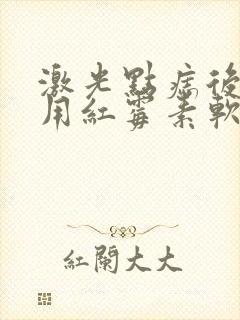 激光點痣後
用紅霉素軟
紅蘭大大